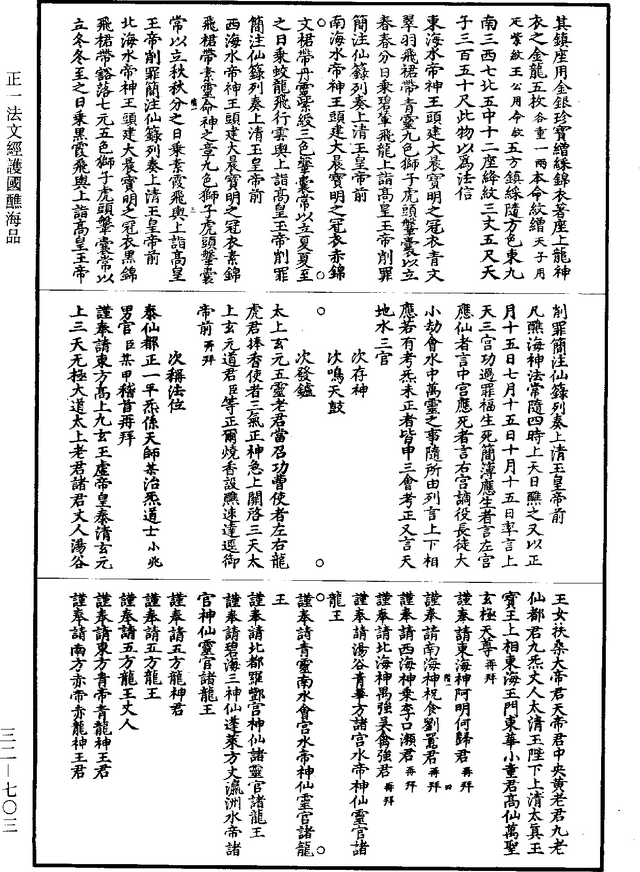 其鎮座用金銀珍寶繒綵錦衣著座上龍神
衣之金龍五枚各重一兩本命紋繒天子用
疋紫紋王公用命紋五方鎮綵隨方色東九
南三西七北五中十二座絳紋三丈五尺天
子三百五十尺此物以為法信
東海水帝神王頭建大晨寶明之冠衣青文
翠羽飛裙帶青靈九色獅子虎頭鞶囊以立
春春分日乘碧輦飛龍上詣高皇玉帝削罪
簡注仙錄列奏上清玉皇帝前
南海水帝神王頭建大晨寶明之冠衣赤錦
文裙帶丹靈紫綬三色鞶囊常以立夏夏至
之日乘蛟龍飛行雲輿上詣高皇玉帝削罪
簡注仙籙列奏上清玉皇帝前
西海水帝神王頭建大晨寶明之冠衣素錦
飛裙帶素靈命神之章九色獅子虎頭鞶囊
常以立秋秋分之日乘素霞飛輿上詣高皇
玉帝削罪簡注仙籙列奏上清玉皇帝前
北海水帝神王頭建大晨寶明之冠衣黑錦
飛裙帶豁落七元五色獅子虎頭鞶囊常以
立冬冬至之日乘黑霞飛輿上詣高皇玉帝
削罪簡注仙籙列奏上清玉皇帝前
凡醮海神法常隨四時上天日醮之又以正
月十五日七月十五日十月十五日率言上
天三官功過罪福生死簡簿應生者言左官
應仙者言中官應死者言右官謫役長徒大
小劫會水中萬靈之事隨所由列言上下相
應若有考炁未正者皆申三會考正又言天
地水三官
次存神
次鳴天鼓
次發鑪
太上玄元五靈老君當召功曹使者左右龍
虎君捧香使者三氣正神急上關啓三天太
上玄元道君臣等正爾燒香設醮速達逕御
帝前再拜
次稱法位
泰仙都正一平炁係天師某治炁道士小兆
男官臣某甲稽首再拜
謹奉請東方高上九玄玉虛帝皇泰清玄元
上三天无極大道太上老君諸君丈人湯谷
玉女扶桑大帝君天帝君中央黃老君九老
仙都君九炁丈人太清玉陛下上清太真王
寶王上相東海玉門東華小童君高仙萬聖
玄極天尊再拜
謹奉請東海神阿明何歸君再拜
謹奉請南海神祝食劉罵君再拜
謹奉請西海神乘李口瀨君再拜
謹奉請北海神禺強吳禽強君再拜
謹奉請湯谷青華方諸宫水帝神仙靈官諸
龍王
謹奉請青靈南水會宫水帝神仙靈官諸龍
王
謹奉請北都羅酆宫神仙諸靈官諸龍王
謹奉請碧海三神仙蓬萊方丈瀛洲水帝諸
官神仙靈官諸龍王
謹奉請五方龍神君
謹奉請五方龍王
謹奉請五方龍王丈人
謹奉請東方青帝青龍神王君
謹奉請南方赤帝赤龍神王君
正一法文經護國醮海品
三二—七〇三